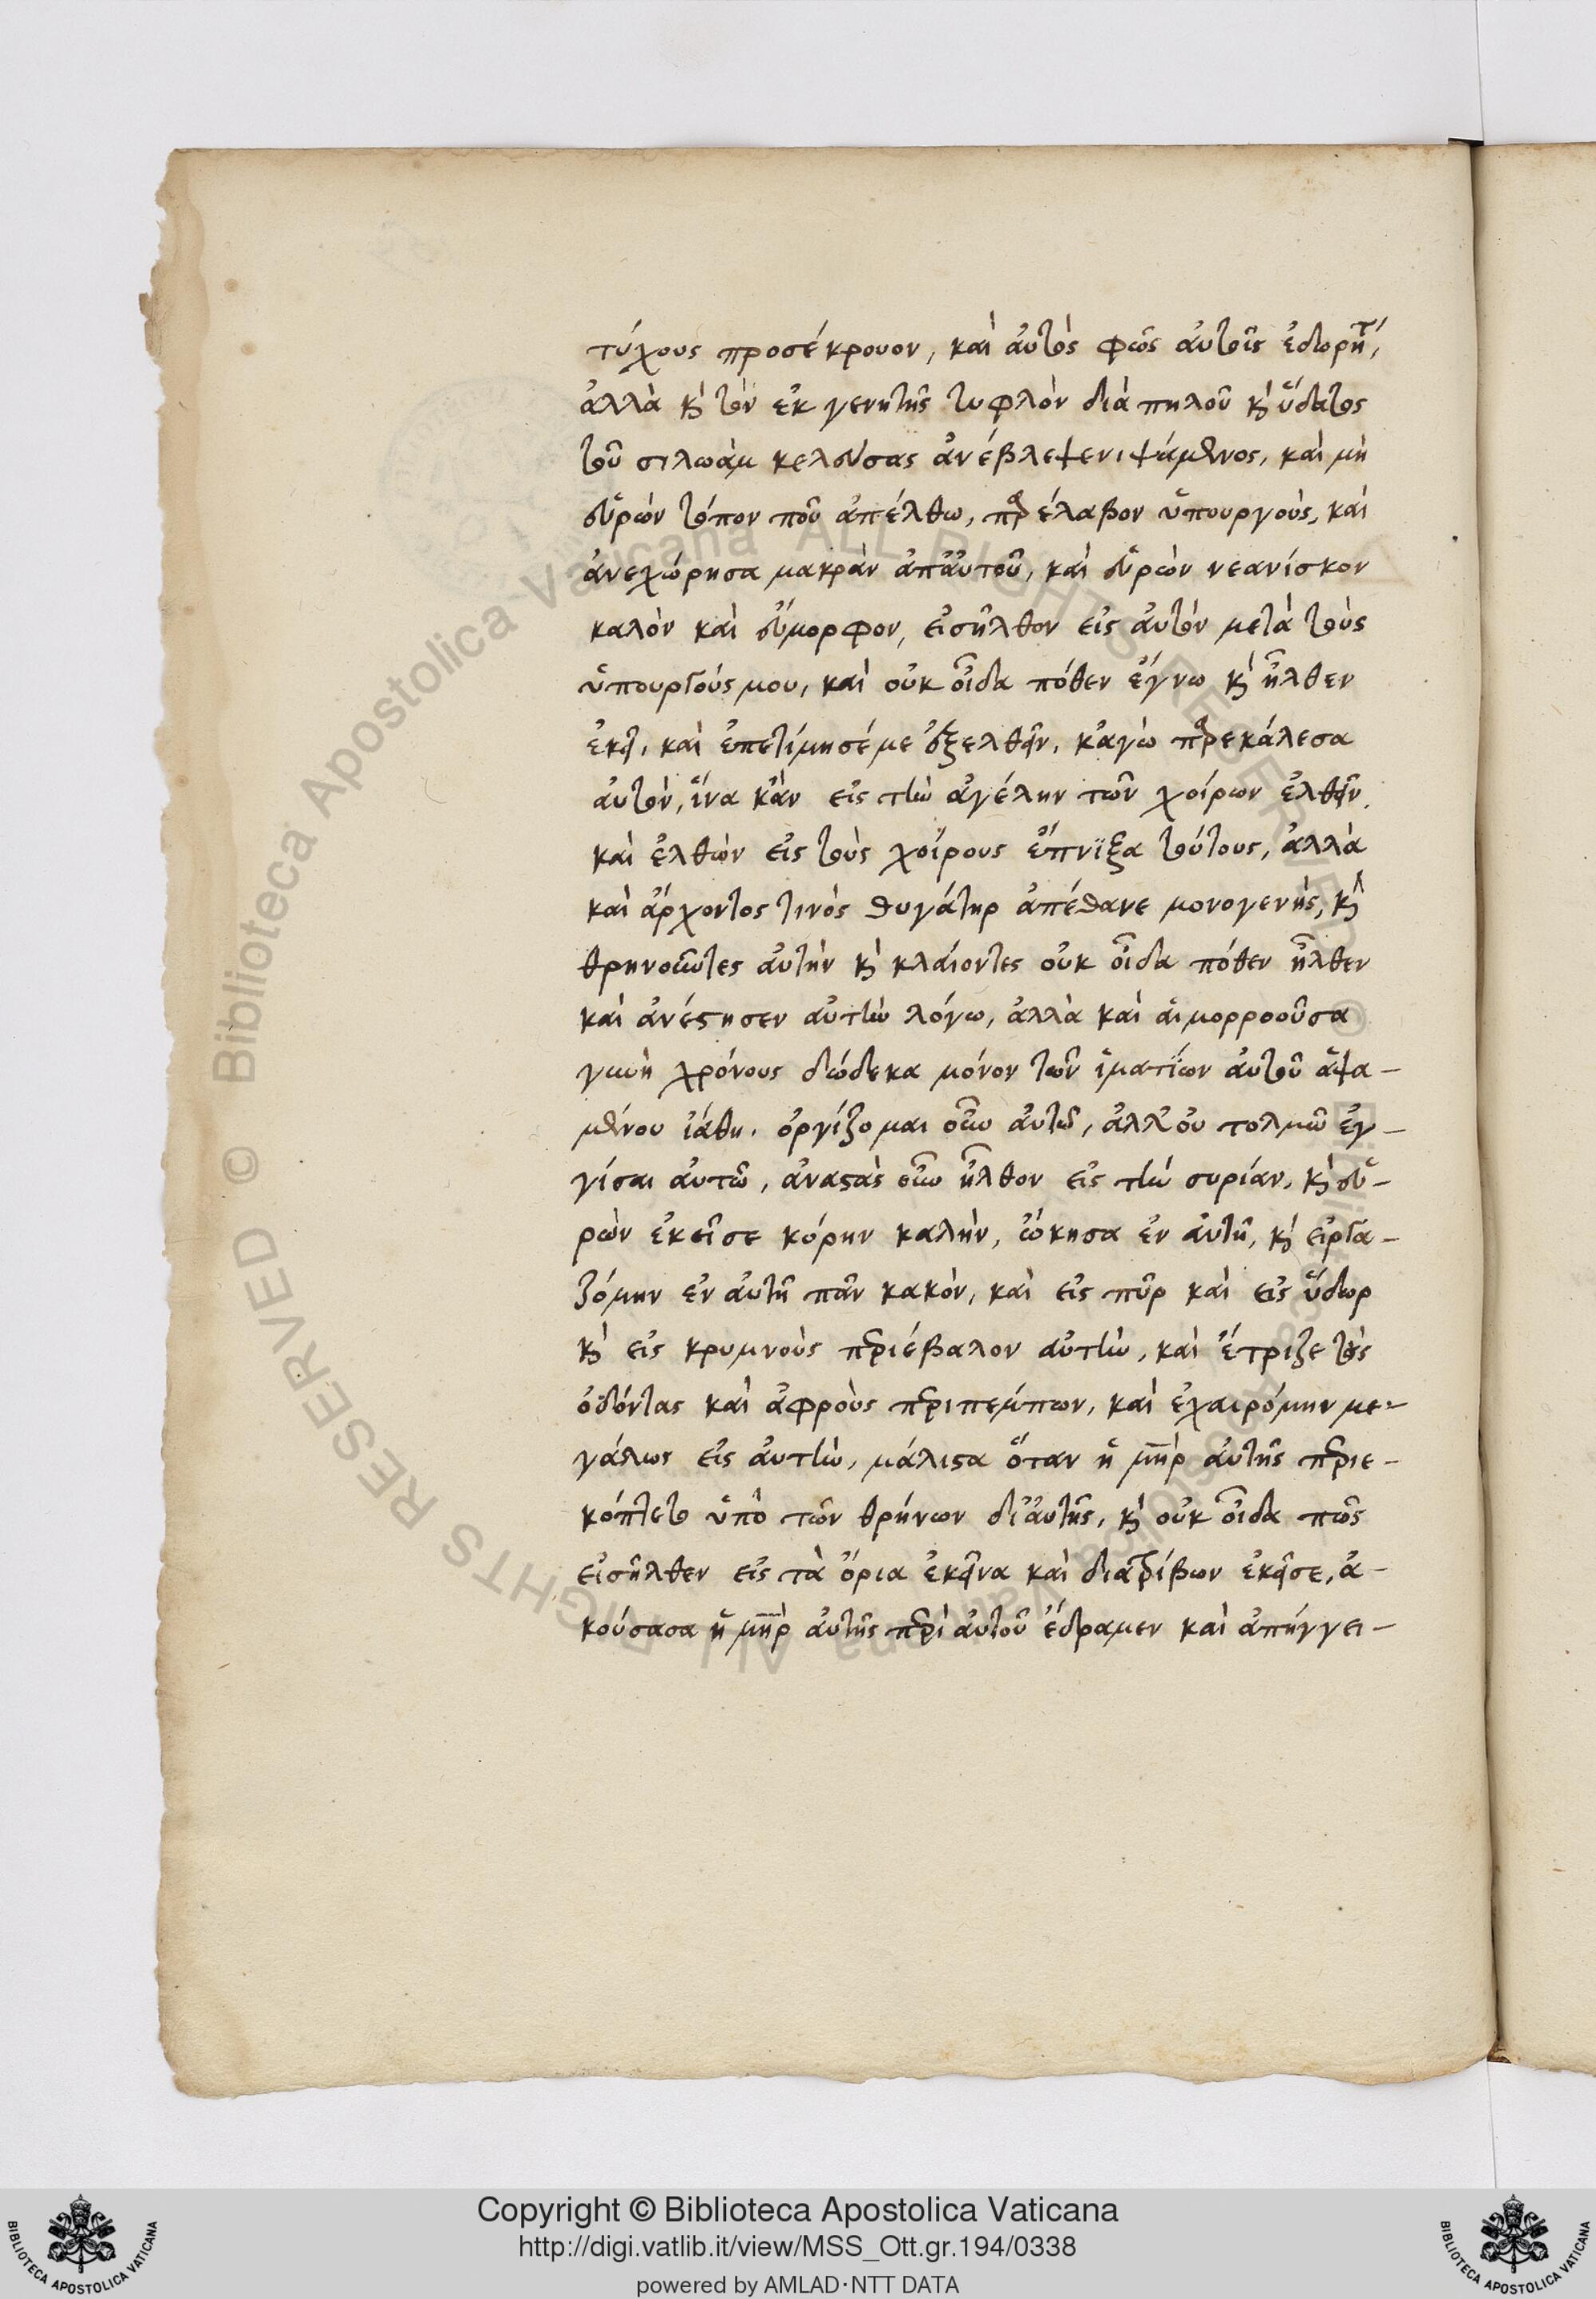 τύχους προσέκρουον, καὶ αὐτὸς φῶς αὐτοῖς ἐδωρήτ,
ἀλλὰ κ̀ τὸν ἐκ γενητῆς τυφλὸν διὰ πηλοῦ κ̀ ὕδατος
τοῦ σιλωὰμ κελεύσας ἀνέβλεψε νιψάμενος, καὶ μὴ
εὑρὼν τόπον ποῦ ἀπέλθω, παρέλαβον ὑπουργοὺς, καὶ
ἀνεχώρησα μακρὰν ἀπ' αὐτοῦ, καὶ εὑρὼν νεανίσκον
καλὸν καὶ εὔμορφον, εἰσῆλθον εἰς αὐτὸν μετὰ τοὺς
ὑπουργούς μου, καὶ οὐκ οἶδα πόθεν ἔγνω κ̀ ἦλθεν
ἐκεῖ, καὶ ἐπετίμησέ με ἐξελθεῖν, κἀγὼ παρεκάλεσα
αὐτὸν, ἵνα κἂν εἰς τὴν ἀγέλην τῶν χοίρων ἐλθεῖν,
καὶ ἐλθὼν εἰς τοὺς χοίρους ἔπνϊξα τούτους, ἀλλὰ
καὶ ἄρχοντος τινὸς θυγάτηρ ἀπέθανε μονογενής, κ̀
θρηνοῦντες αὐτὴν κ̀ κλαίοντες οὐκ οἶδα πόθεν ἦλθεν
καὶ ἀνέστησεν αὐτὴν λόγω, ἀλλὰ καὶ αἱμορροοῦσα
γυνὴ χρόνους δώδεκα μόνον τῶν ἱματίων αὐτοῦ ἁψα-
μένου ἰάθη. ὀργίζομαι οὖν αὐτῶ, ἀλλ' οὐ τολμῶ ἐγ-
γίσαι αὐτῶ, ἀναστὰς οὖν ἦλθον εἰς τὴν συρίαν, κ̀ εὑ-
ρὼν ἐκεῖσε κόρην καλὴν, ὤκησα ἐν αὐτῆ, κ̀ εἰργα-
ζόμην ἐν αὐτῆ πᾶν κακόν, καὶ εἰς πῦρ καὶ εἰς ὕδωρ
κ̀ εἰς κρυμνοὺς περιέβαλον αὐτὴν, καὶ ἔτριζε τοὺς
ὀδόντας καὶ ἀφροὺς περιπέμπων, καὶ ἐχαιρόμην με-
γάλως εἰς αὐτὴν, μάλιστα ὅταν ἡ μὴρ αὐτῆς περιε-
κόπτετο ὑπὸ τῶν θρήνων δι' αὐτῆς, κ̀ οὐκ οἶδα πῶς
εἰσῆλθεν εἰς τὰ ὅρια ἐκεῖνα καὶ διατρίβων ἐκεῖσε, ἀ-
κούσασα ἡ μὴρ αὐτῆς περὶ αὐτοῦ ἔδραμεν καὶ ἀπήγγει-
Copyright © Biblioteca Apostolica Vaticana
http://digi.vatlib.it/view/MSS_Ott.gr.194/0338
powered by AMLAD·NTT DATA